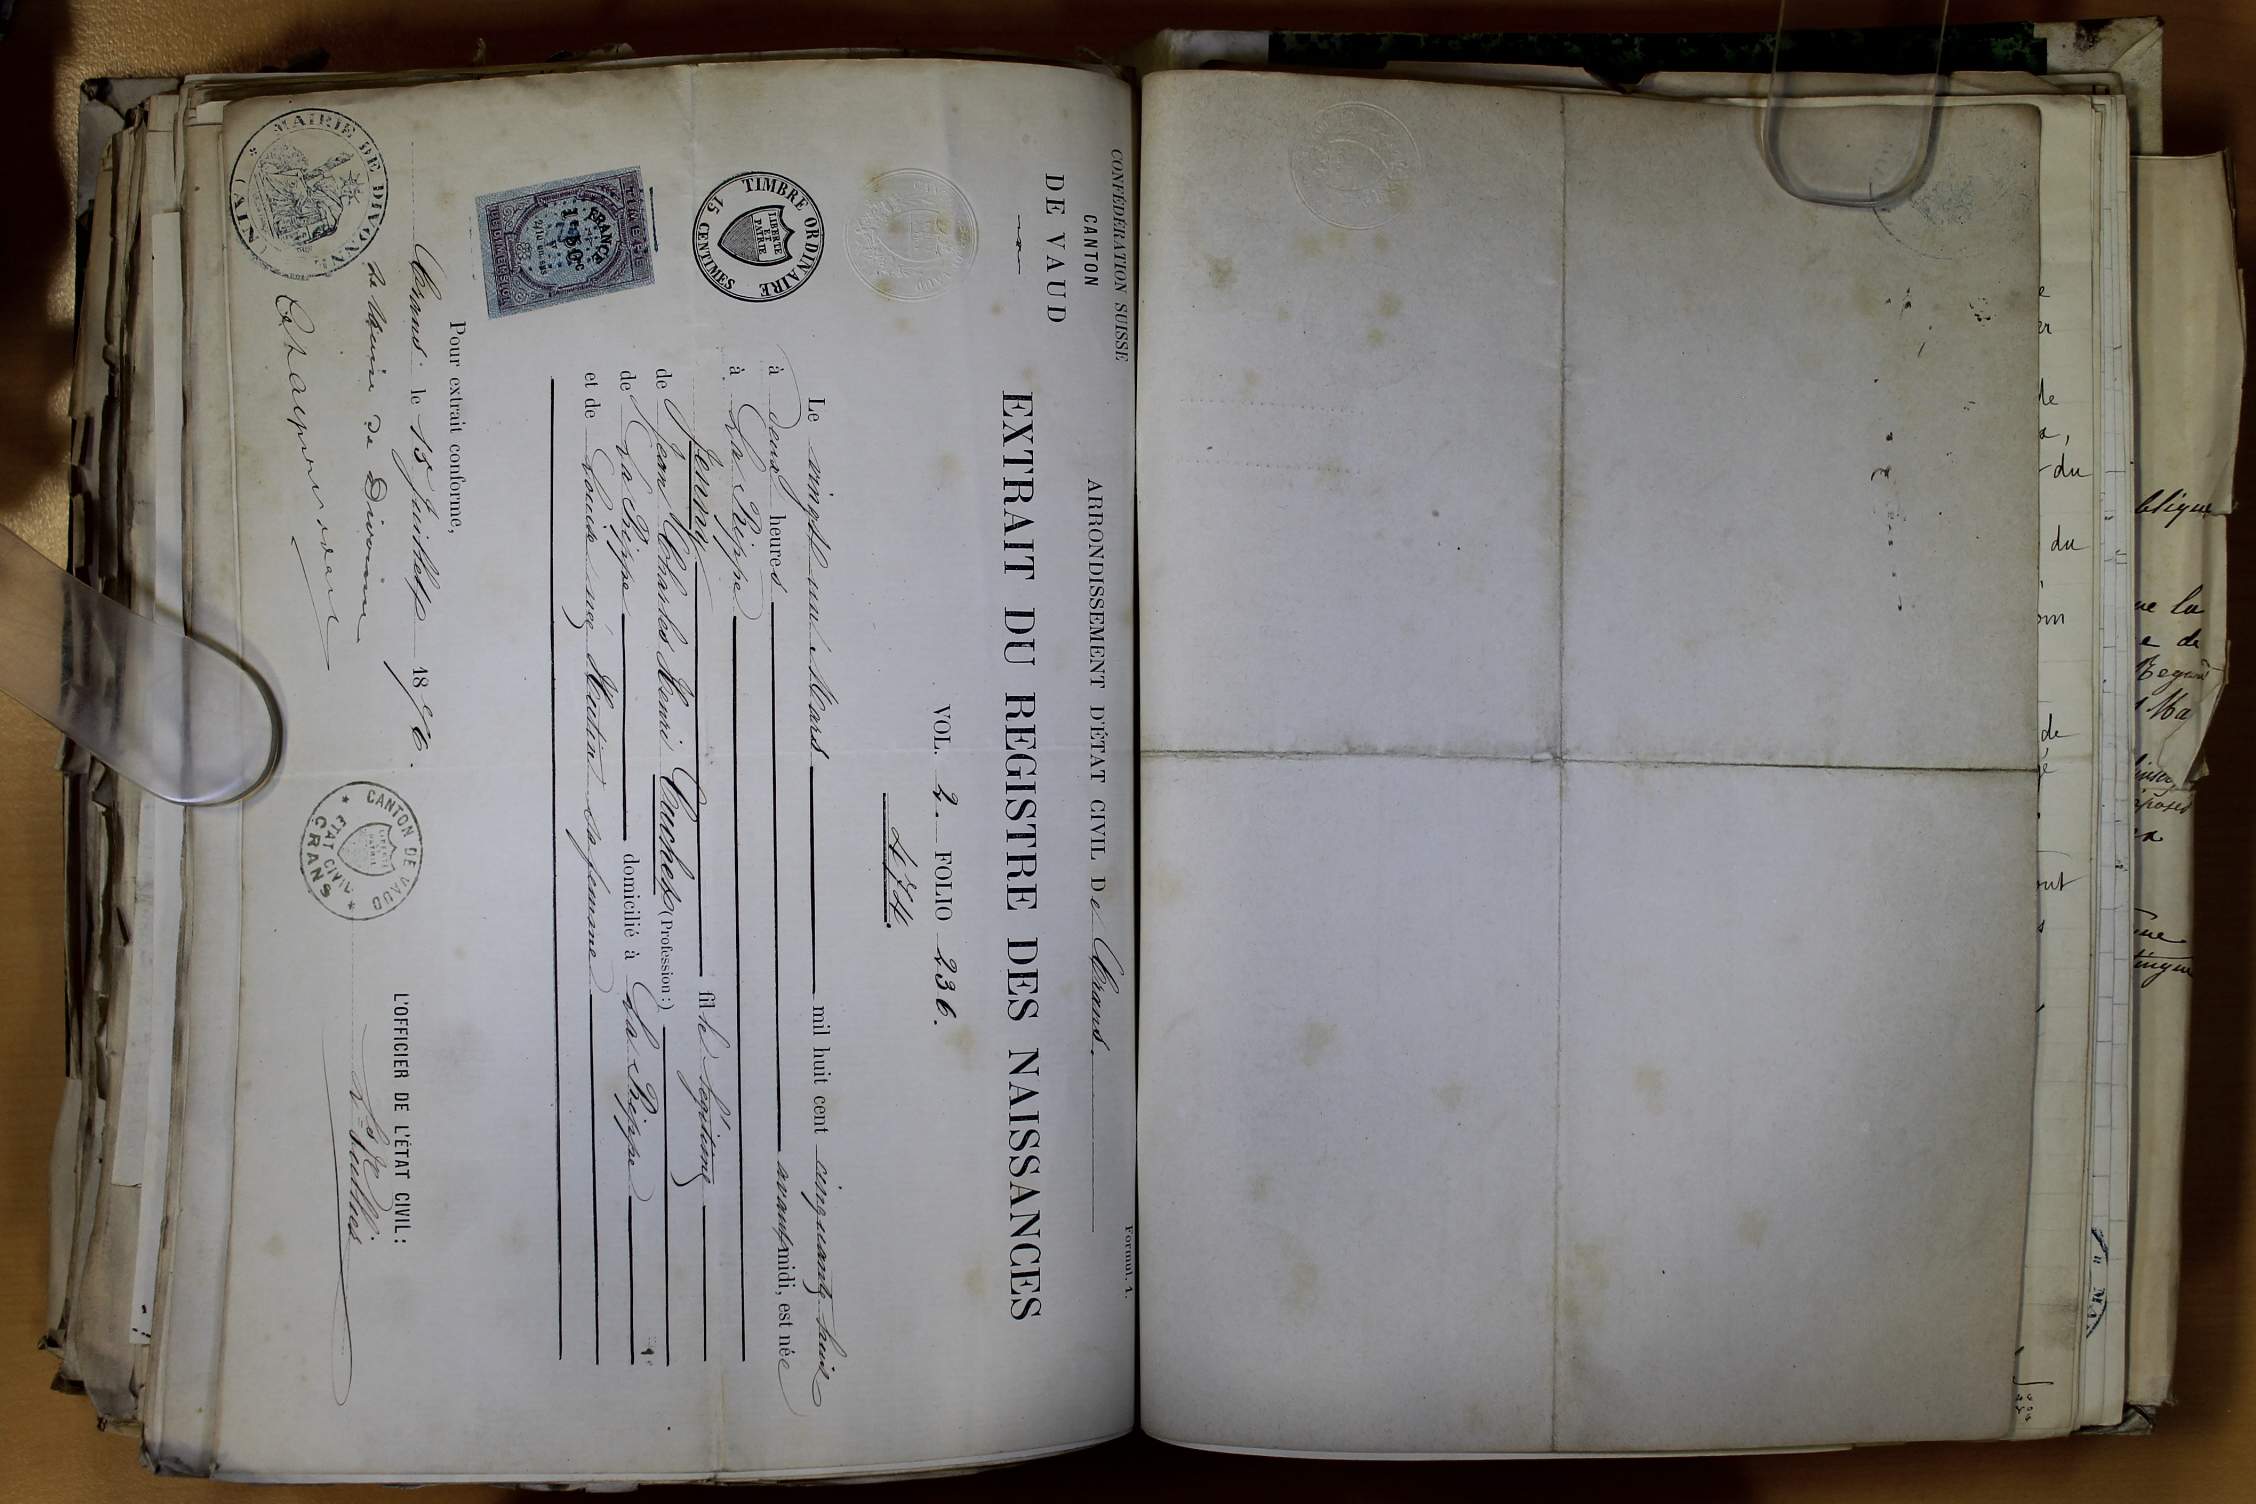 CONFÉDÉRATION SUISSE
CANTON
DE VAUD
ARRONDISSEMENT D'ÉTAT CIVIL De Crans.
Formul. 1.
EXTRAIT DU REGISTRE DES NAISSANCES
VOL. 2. FOLIO 236.
474.
TIMBRE ORDINAIRE
LIBERTÉ ET PATRIE
15 CENTIMES
Le vingt un Mars mil huit cent cinquante huit
à deux heures avant midi, est née
à La Rippe
Jenny fille légitime
de Jean Charles Henri Cuchet (Profession:)
de La Rippe domicilié à La Rippe
et de Louise née Mutin sa femme
FRANCE
Pour extrait conforme,
Crans. le 15 Juillet 1876.
L'OFFICIER DE L'ÉTAT CIVIL:
CANTON DE VAUD
LIBERTÉ ET PATRIE
ETAT CIVIL
CRANS
MAIRIE DE DIVONNE
(AIN)
Le Maire de Divonne